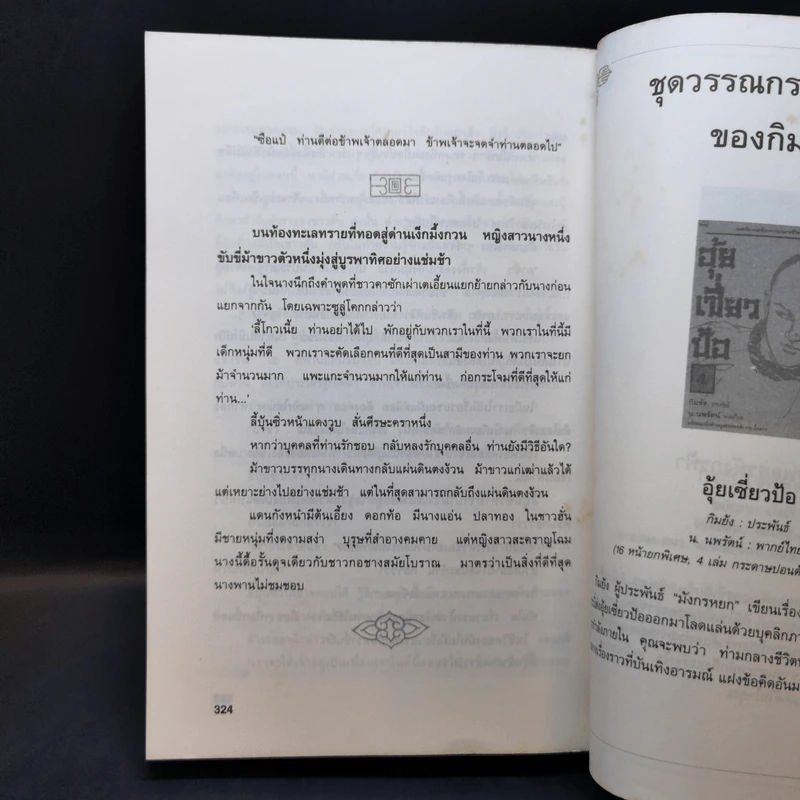 "ซือแป๋ ท่านดีต่อข้าพเจ้าตลอดมา ข้าพเจ้าจะจดจำท่านตลอดไป"
บนท้องทะเลทรายที่ทอดสู่ด่านเง็กมึ้งกวน หญิงสาวนางหนึ่ง
ขับขี่ม้าขาวตัวหนึ่งมุ่งสู่บูรพาทิศอย่างแช่มช้า
ในใจนางนึกถึงคำพูดที่ชาวคาซักเผ่าเตเอี้ยนแยกย้ายกล่าวกับนางก่อน
แยกจากกัน โดยเฉพาะซูลู่โคกกล่าวว่า
'ลี้โกวเนี้ย ท่านอย่าได้ไป พักอยู่กับพวกเราในที่นี้ พวกเราในที่นี้มี
เด็กหนุ่มที่ดี พวกเราจะคัดเลือกคนที่ดีที่สุดเป็นสามีของท่าน พวกเราจะยก
ม้าจำนวนมาก แพะแกะจำนวนมากให้แก่ท่าน ก่อกระโจมที่ดีที่สุดให้แก่
ท่าน...'
ลี้บุ้นซิ่วหน้าแดงวูบ สั่นศีรษะคราหนึ่ง
หากว่าบุคคลที่ท่านรักชอบ กลับหลงรักบุคคลอื่น ท่านยังมีวิธีอันใด?
ม้าขาวบรรทุกนางเดินทางกลับแผ่นดินตงง้วน ม้าขาวแก่เฒ่าแล้วได้
แต่เหยาะย่างไปอย่างแช่มช้า แต่ในที่สุดสามารถกลับถึงแผ่นดินตงง้วน
แดนกังหนำมีต้นเอี้ยง ดอกท้อ มีนางแอ่น ปลาทอง ในชาวฮั่น
มีชายหนุ่มที่งดงามสง่า บุรุษที่สำอางคมคาย แต่หญิงสาวสะคราญโฉม
นางนี้ดื้อรั้นดุจเดียวกับชาวกอชางสมัยโบราณ มาตรว่าเป็นสิ่งที่ดีที่สุด
นางพานไม่ชมชอบ
324
ชุดวรรณกร
ของกิม
อุ้ย
เซี่ยว
ป้อ
4
อุ้ยเซี่ยวป้อ
กิมย้ง : ประพันธ์
น. นพรัตน์ : พากย์ไทย
(16 หน้ายกพิเศษ, 4 เล่ม กระดาษปอนด์
กิมย้ง ผู้ประพันธ์ "มังกรหยก" เขียนเรื่อง
อุ้ยเซี่ยวป้อออกมาโลดแล่นด้วยบุคลิกภา
ภายใน คุณจะพบว่า ท่ามกลางชีวิต
เรื่องราวที่บันเทิงอารมณ์ แฝงข้อคิดอัน